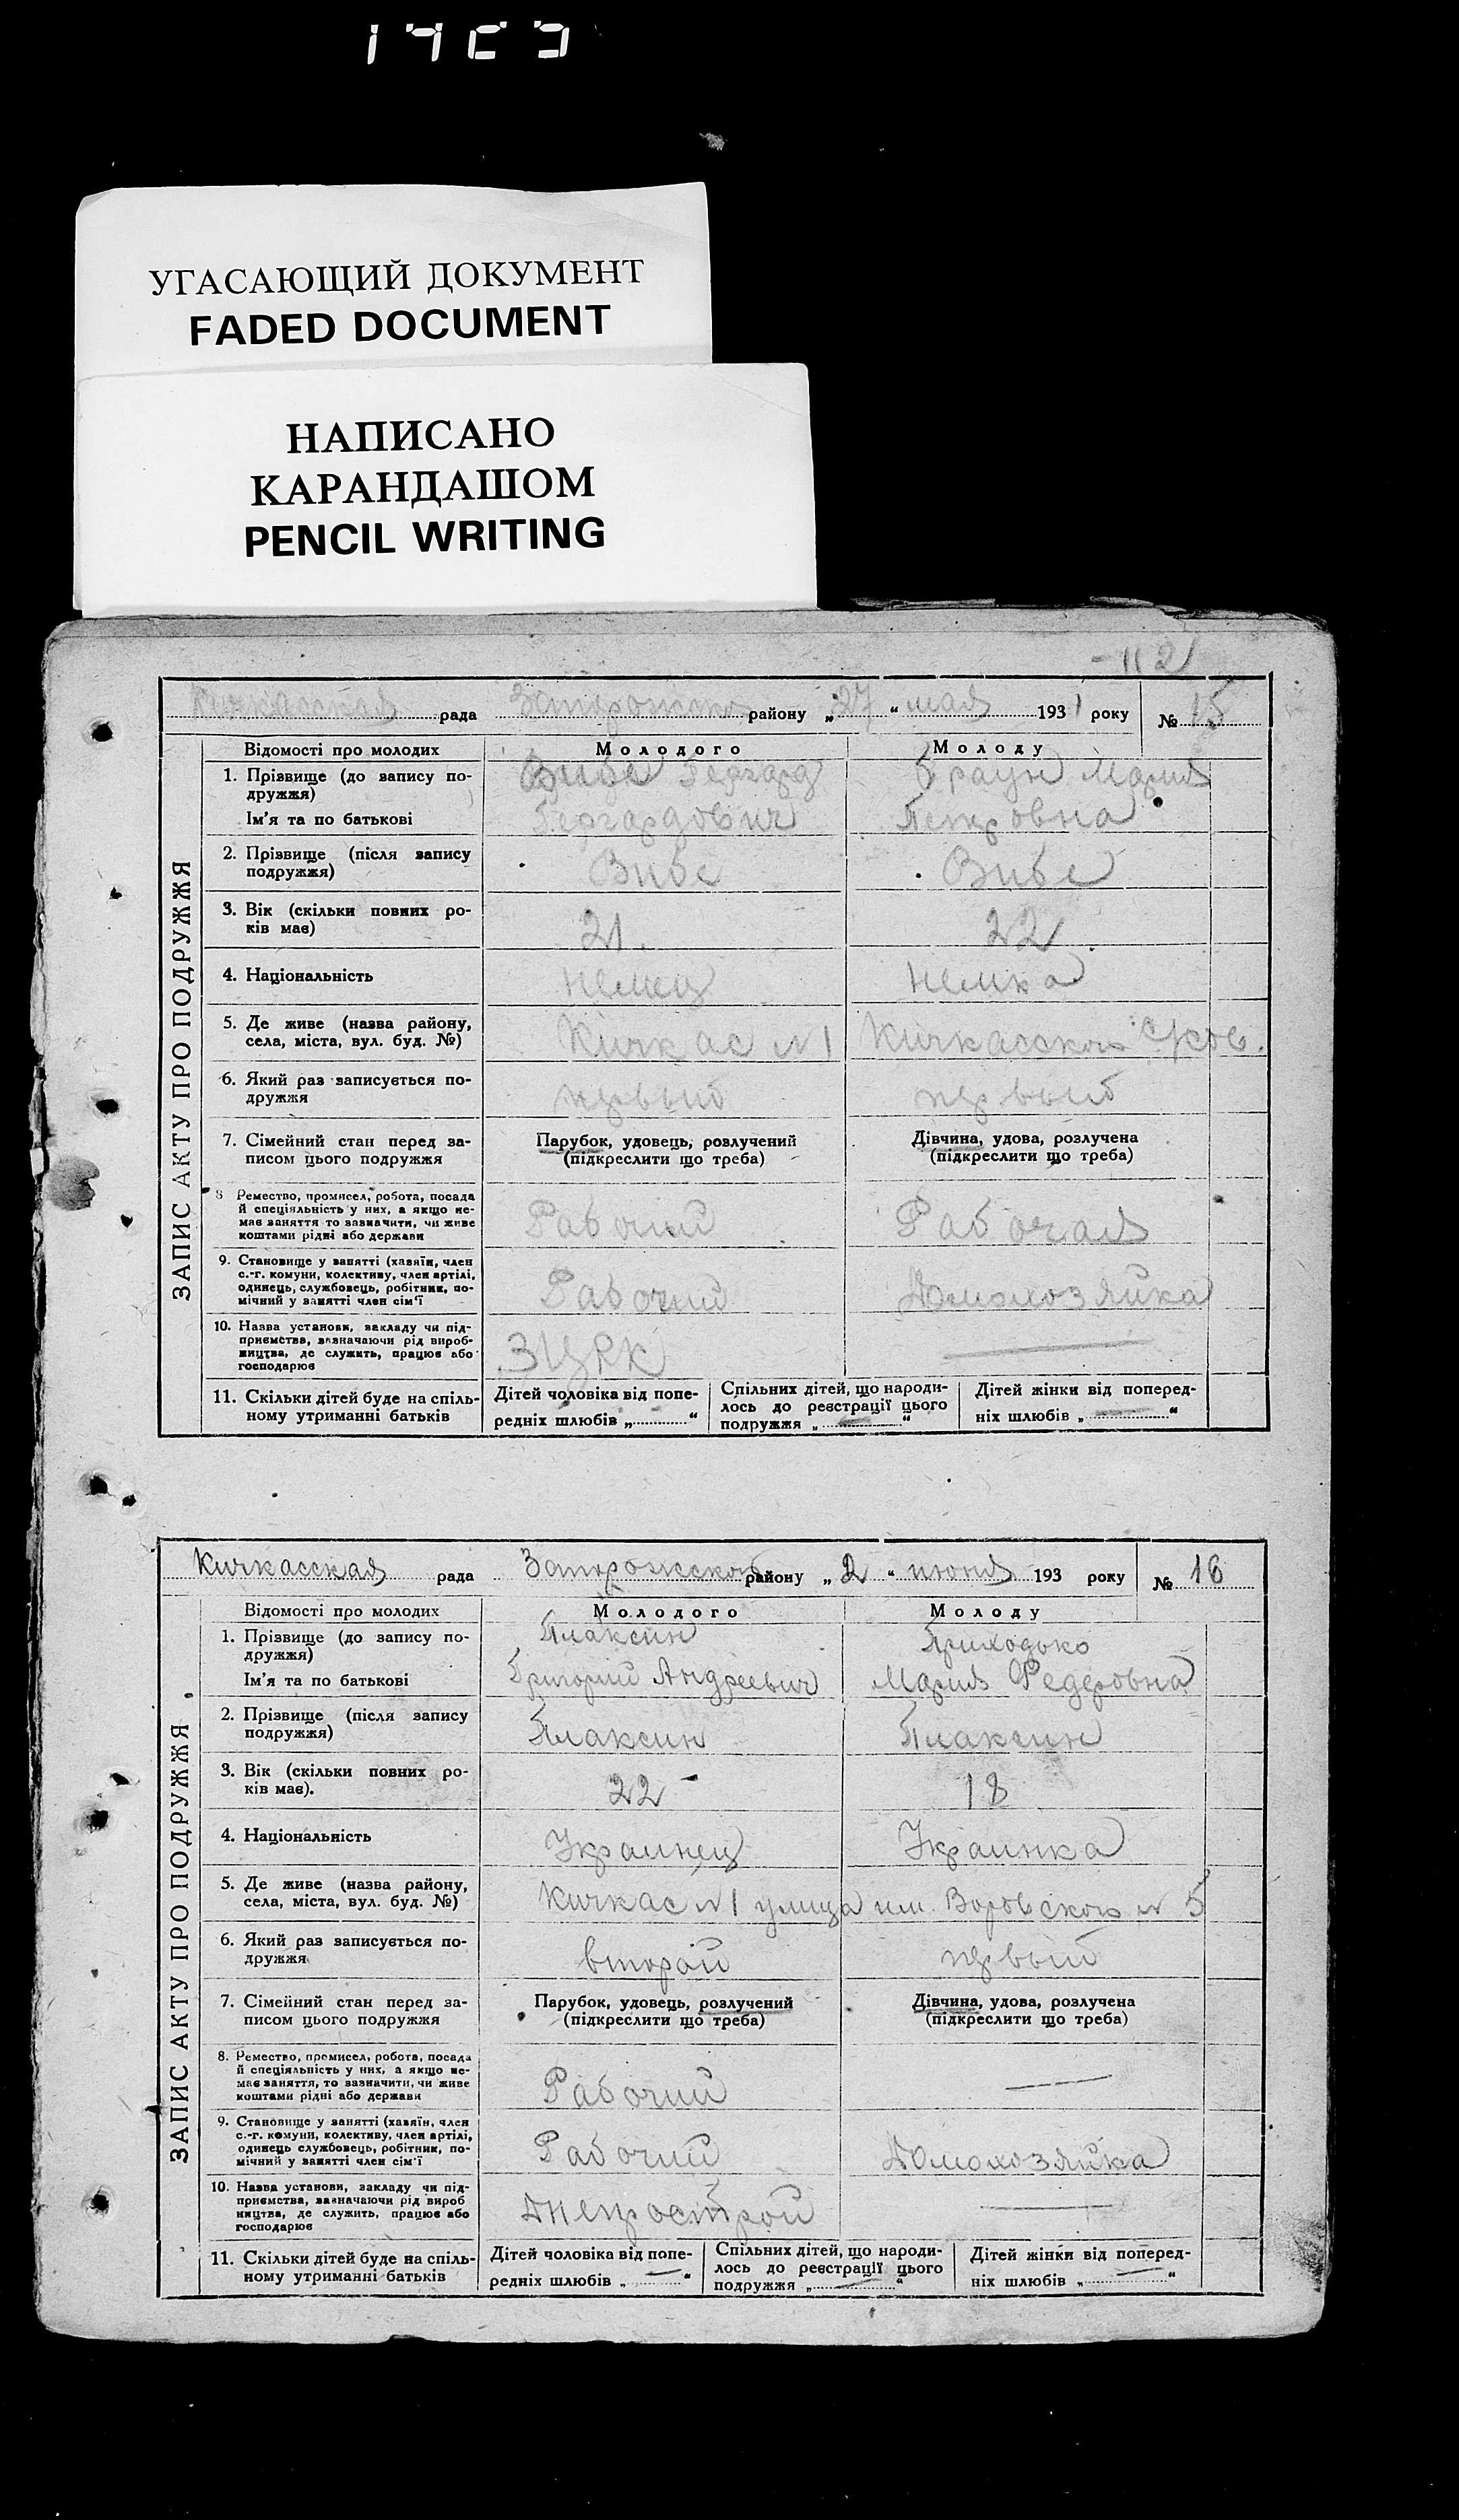 УГАСАЮЩИЙ ДОКУМЕНТ
FADED DOCUMENT
НАПИСАНО
КАРАНДАШОМ
PENCIL WRITING
112
Кичкасская рада Запорожского району „27“ мая 1931 року № 15
ЗАПИС АКТУ ПРО ПОДРУЖЖЯ
Відомості про молодих Молодого Молоду
1. Прізвище (до запису по- Вибе Гергард Браун Мария
дружжя)
Ім'я та по батькові Гергардович Петровна
2. Прізвище (після запису Вибе Вибе
подружжя)
3. Вік (скільки повних ро- 21. 22.
ків має)
4. Національність Немец Немка
5. Де живе (назва району, Кичкас №1 Кичкасского
села, міста, вул. буд. №)
6. Який раз записується по- первый первый
дружжя
7. Сімейний стан перед за- Парубок, удовець, розлучений Дівчина, удова, розлучена
писом цього подружжя (підкреслити що треба) (підкреслити що треба)
8 Ремество, промисел, робота, посада Рабочий Рабочая
й спеціяльність у них, а якщо не-
має заняття то зазначити, чи живе
коштами рідні або держави
9. Становище у занятті (хазяїн, член Рабочий Домохозяйка
с.-г. комуни, колективу, член артілі,
одинець, службовець, робітник, по-
мічний у занятті член сім'ї
10. Назва установи, закладу чи під- ЗЦРК
приємства, зазначаючи рід вироб-
ництва, де служить, працює або
господарює
11. Скільки дітей буде на спіль- Дітей чоловіка від попе- Спільних дітей, що народи- Дітей жінки від поперед-
ному утриманні батьків редніх шлюбів „ “ лось до реєстрації цього ніх шлюбів „ “
подружжя „ “
Кичкасская рада Запорожского району „2“ июня 193 року № 16
ЗАПИС АКТУ ПРО ПОДРУЖЖЯ
Відомості про молодих Молодого Молоду
1. Прізвище (до запису по- Плаксин Приходько
дружжя)
Ім'я та по батькові Григорий Андреевич Мария Федеровна
2. Прізвище (після запису Плаксин Плаксин
подружжя)
3. Вік (скільки повних ро- 22 18
ків має).
4. Національність Украинец Украинка
5. Де живе (назва району, Кичкас №1 улица им. Воровского № 5
села, міста, вул. буд. №)
6. Який раз записується по- второй первый
дружжя
7. Сімейний стан перед за- Парубок, удовець, розлучений Дівчина, удова, розлучена
писом цього подружжя (підкреслити що треба) (підкреслити що треба)
8. Ремество, промисел, робота, посада Рабочий
й спеціяльність у них, а якщо не-
має заняття, то зазначити, чи живе
коштами рідні або держави
9. Становище у занятті (хазяїн, член Рабочий Домохозяйка
с.-г. комуни, колективу, член артілі,
одинець службовець, робітник, по-
мічний у занятті член сім'ї
10. Назва установи, закладу чи під- Днепрострой
приємства, зазначаючи рід вироб
ництва, де служить, працює або
господарює
11. Скільки дітей буде на спіль- Дітей чоловіка від попе- Спільних дітей, що народи- Дітей жінки від поперед-
ному утриманні батьків редніх шлюбів „ “ лось до реєстрації цього ніх шлюбів „ “
подружжя „ “